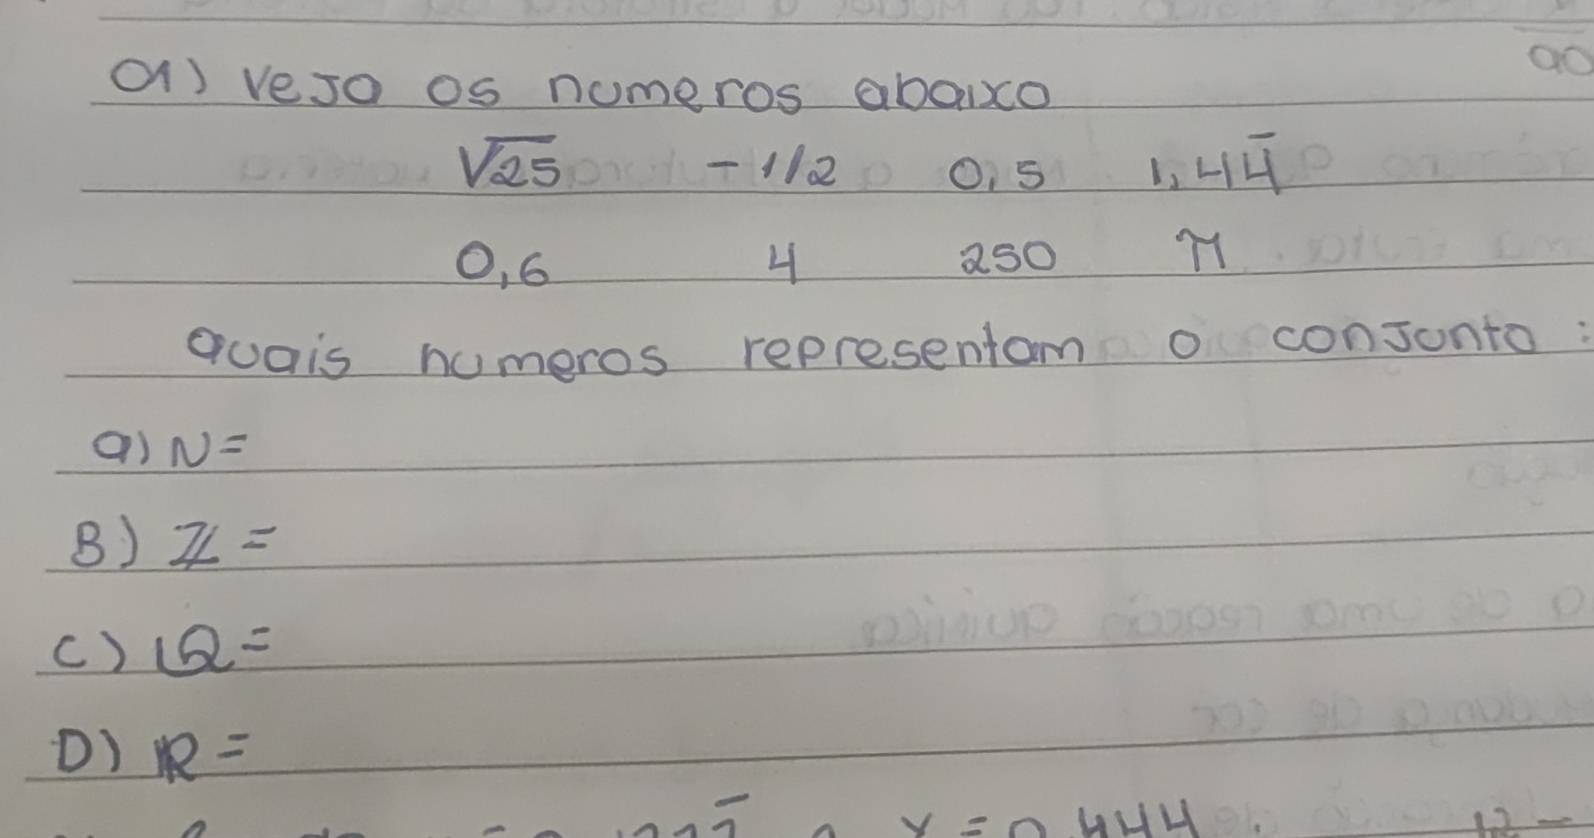 01) veJa os numeros abaixo
√25 -1/2 0,5 1,44̅
0,6 4 250 π
quais numeros representam o conJunto:
a) N=
B) ℤ=
C) ℚ=
D) ℝ=